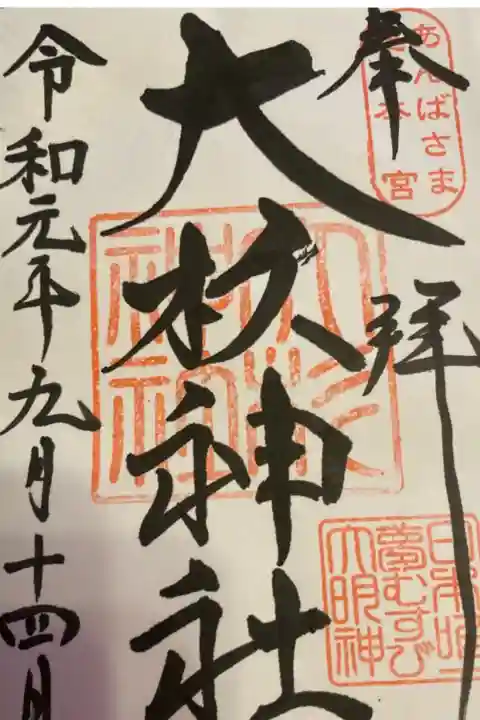 奉拝
あんばさま
総本宮
大杉神社
大杉神社
日本唯一
夢むすび
大明神
令和元年九月十四日